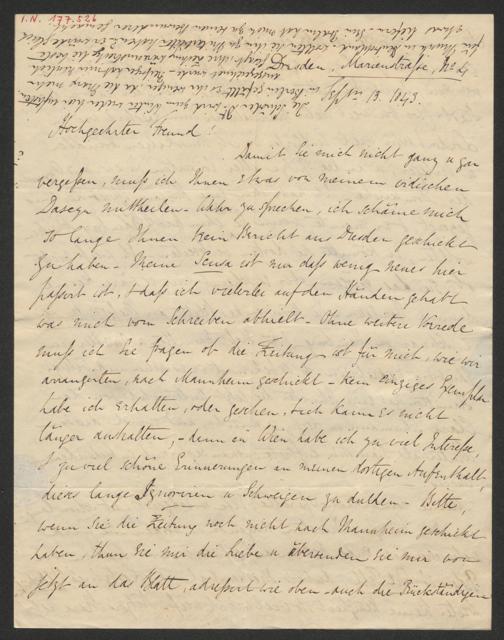 I.N. 177.526
Dresden, Marienstraße, No 4
Septbr 13. 1843.
Hochgeehrter Freund!
Damit Sie mich nicht ganz u gar
vergeßen, muß ich Ihnen Etwas von meinem irdischen
Daseyn mittheilen - Wahr zu sprechen, ich schäme mich
so lange Ihnen kein Bericht aus Dresden geschickt
zu haben - Meine Scusa ist nur daß wenig neues hier
passirt ist, & daß ich vielerlei auf den Händen gehabt
was mich vom Schreiben abhielt - Ohne weitere Vorrede
muß ich Sie fragen ob die Zeitung - ist für mich, wie wir
arrangirten, nach Mannheim geschickt - kein einziges Exemplar
habe ich erhalten, oder gesehen, & ich kann es nicht
länger aushalten, - denn in Wien habe ich zu viel Interesse,
& zu viel schöne Erinnerungen an meinen dortigen Aufenthalt,
dieses lange Ignoriren u Schweigen zu dulden - Bitte,
wenn Sie die Zeitung noch nicht nach Mannheim geschickt
haben, thun Sie mir die Liebe u übersenden Sie mir von
jetzt an das Blatt, adressirt wie oben - auch die Rückständigen